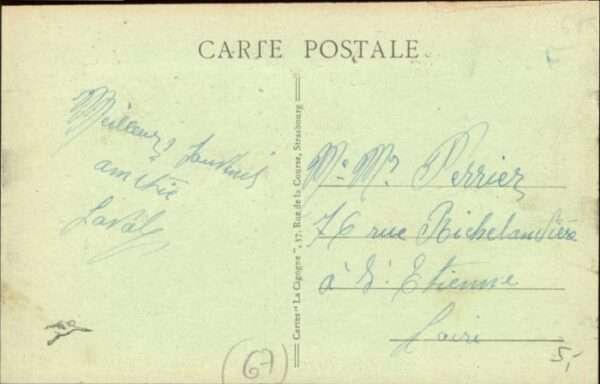 CARTE POSTALE
Meilleurs Souvenirs
amitié
Laval
Cartes "La Cigogne", 37, Rue de la Course, Strasbourg
Me Mr Perrier
76 rue Richelandière
à St Etienne
Loire
67
5,-